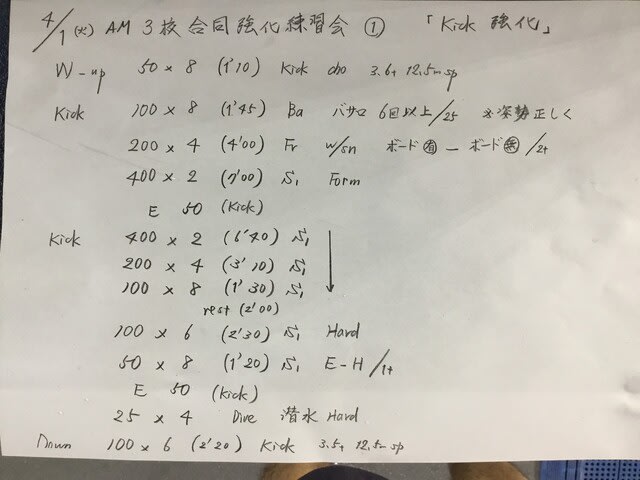 4/1 (火) AM 3校合同強化練習会 ① 「Kick 強化」
W-up 50 × 8 (1'10) Kick cho 3.6t 12.5m sp
Kick 100 × 8 (1'45) Ba バサロ 6回以上/25 ※姿勢正しく
200 × 4 (4'00) Fr w/sn ボード㊒ − ボード㊋/2t
400 × 2 (7'00) S1 Form
E 50 (Kick)
Kick 400 × 2 (6'40) S1
200 × 4 (3'10) S1
100 × 8 (1'30) S1
rest (2'00)
100 × 6 (2'30) S1 Hard
50 × 8 (1'20) S1 E-H/1t
E 50 (Kick)
25 × 4 Dive 潜水 Hard
Down 100 × 6 (2'20) Kick 3.5t 12.5m sp